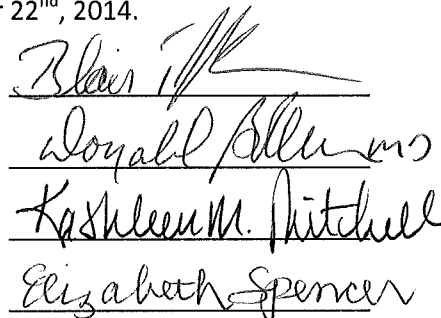 22nd, 2014.
Blair
Donald Allen MD
Kathleen M. Mitchell
Elizabeth Spencer